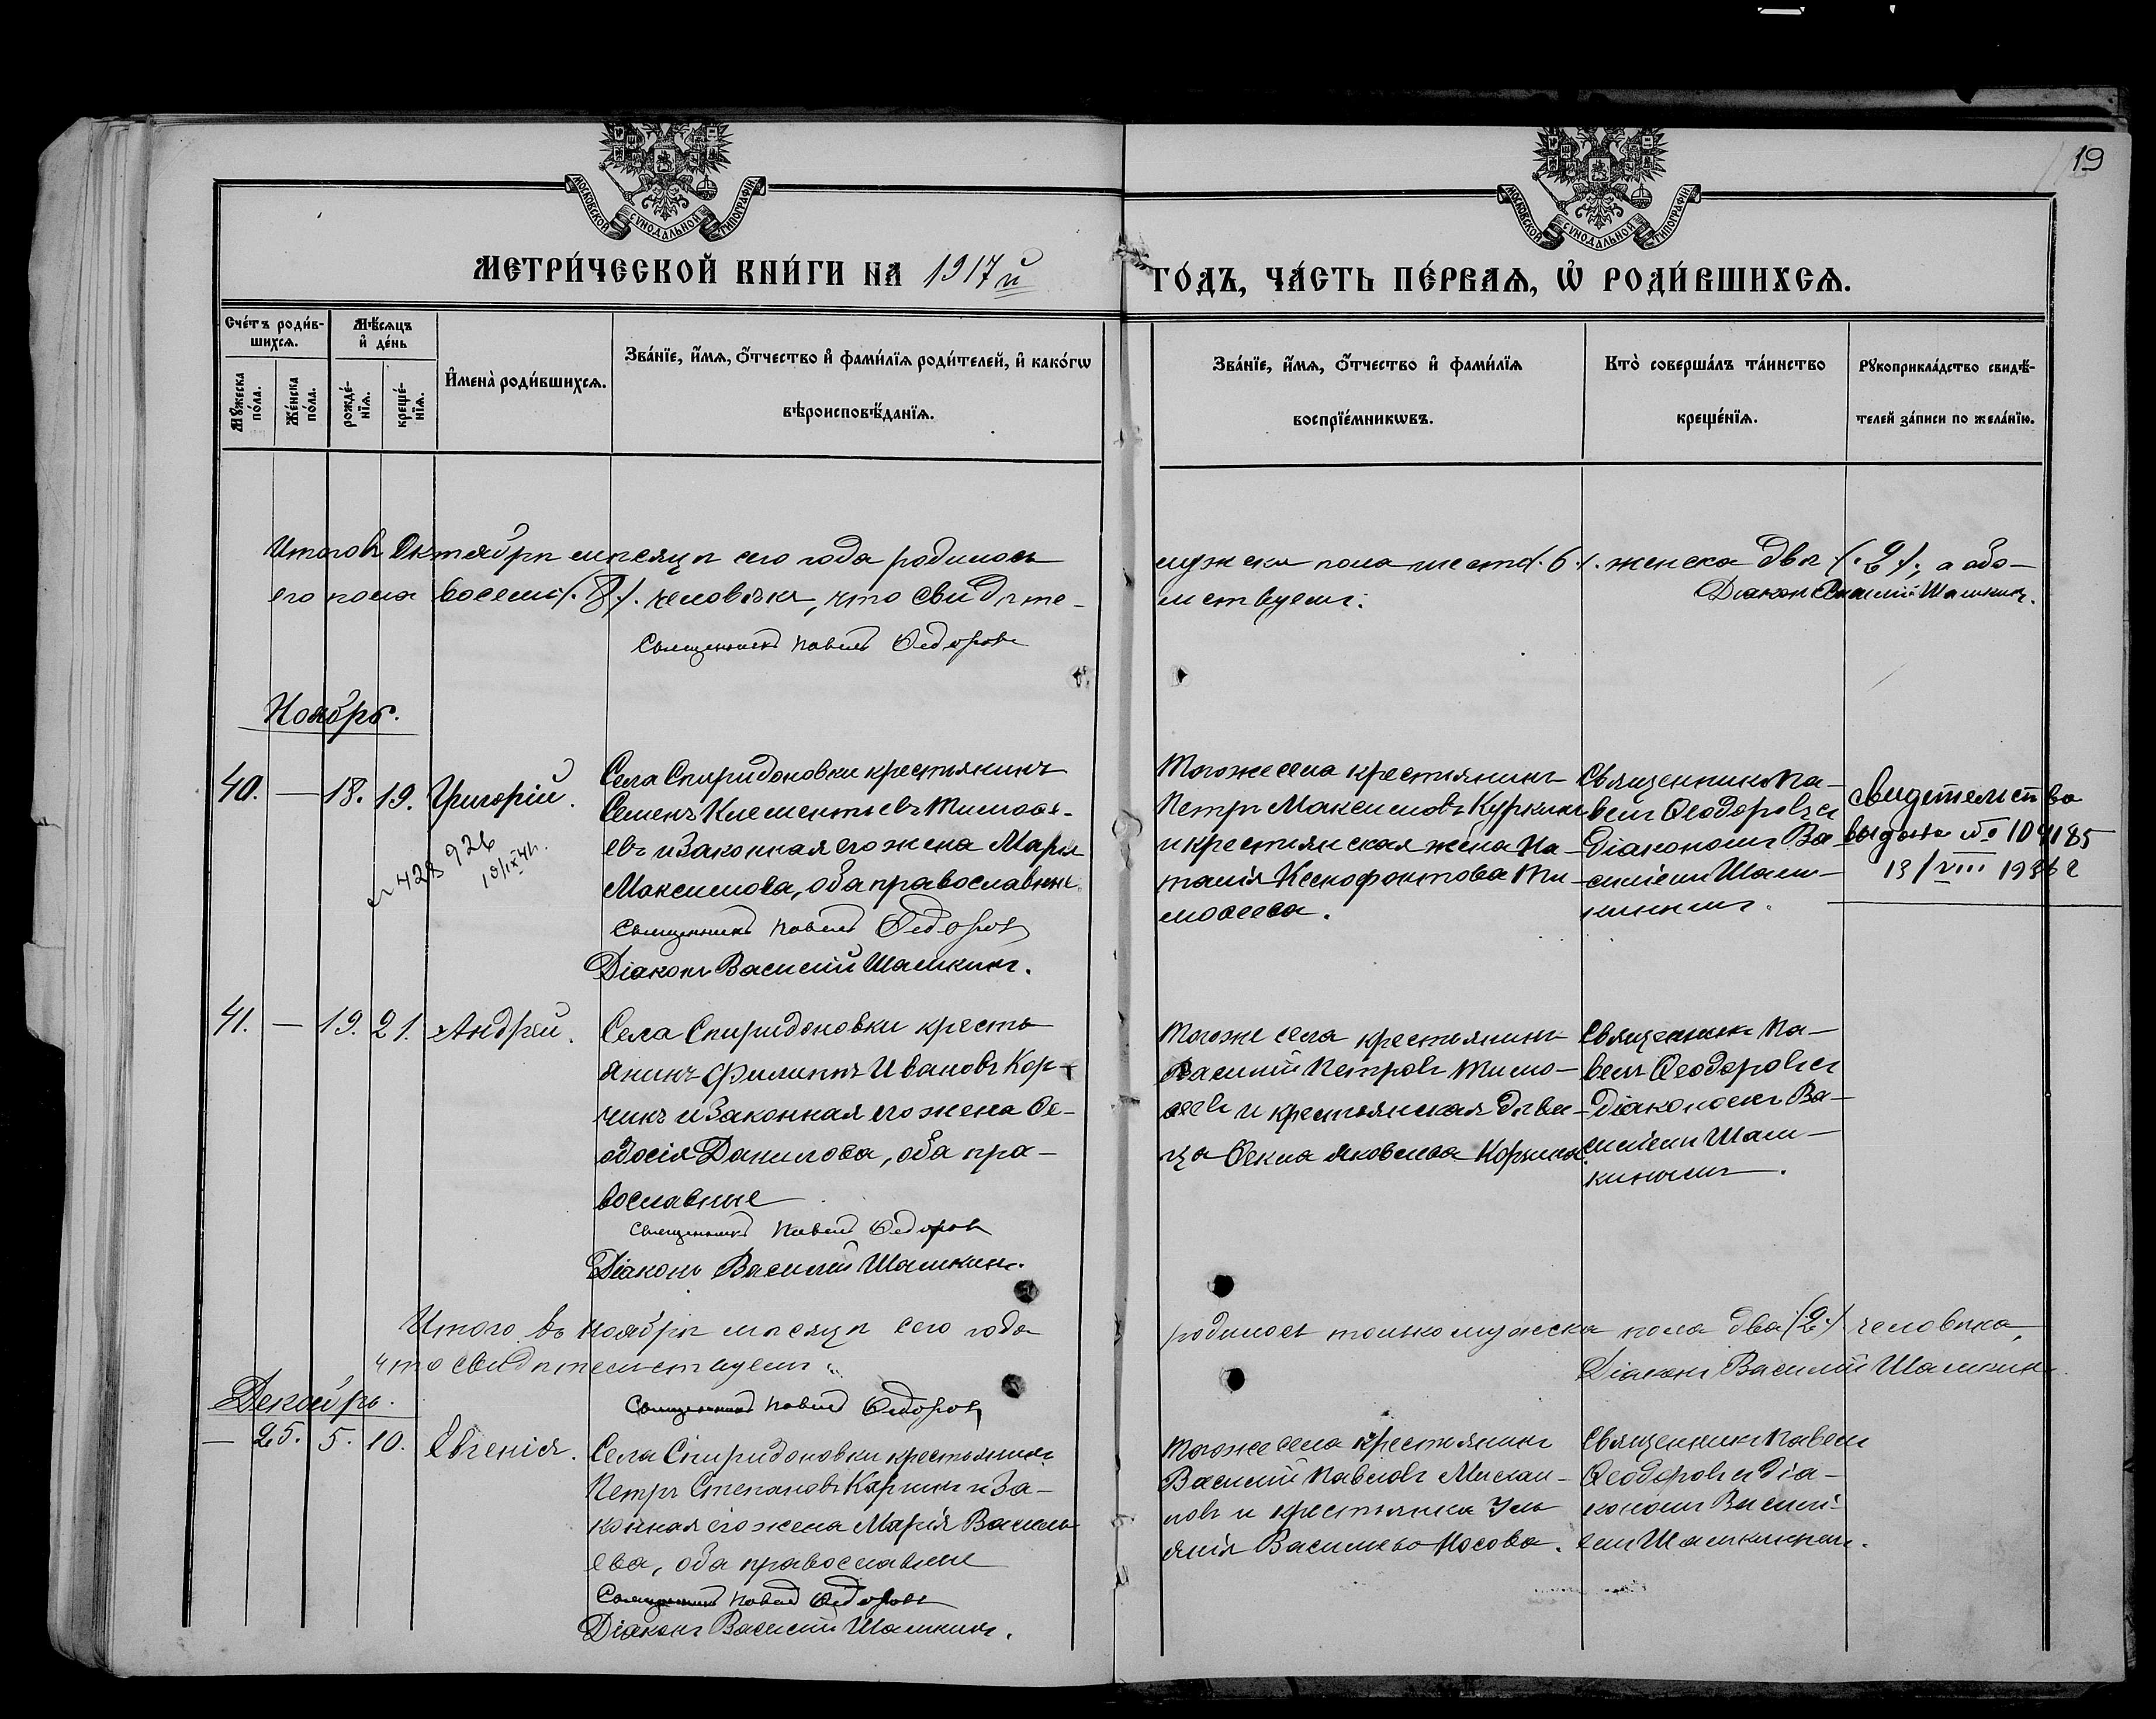 19
МОСКОВСКОЙ СѴНОДАЛЬНОЙ ТИПОГРАФІИ
МОСКОВСКОЙ СѴНОДАЛЬНОЙ ТИПОГРАФІИ
МЕТРИ́ЧЕСКОЙ КНИ́ГИ НА 1917 й
ГО́ДЪ, ЧА́СТЬ ПЕ́РВАѦ, Ѡ҆ РОДИ́ВШИХСѦ.
Сче́тъ роди́в-
шихсѧ.
Мꙋ́жеска
по́ла.
Же́нска
по́ла.
Мѣ́сѧцъ
и҆ де́нь
рожде́-
нїѧ.
креще́-
нїѧ.
И҆мена̀ роди́вшихсѧ.
Зва́нїе, и҆́мѧ, ѻ҆́тчество и҆ фами́лїѧ роди́телей, и҆ како́гѡ
вѣроисповѣ́данїѧ.
Зва́нїе, и҆́мѧ, ѻ҆́тчество и҆ фами́лїѧ
воспрїе́мникѡвъ.
Кто̀ соверша́лъ та́инство
креще́нїѧ.
Рꙋкоприкла́дство свидѣ́-
телей за́писи по жела́нїю.
Итого въ Октябрѣ мѣсяцѣ сего года родилось
его пола восемь /.8./. человѣкъ, что свидѣте-
Священникъ Павелъ Федоровъ
мужска пола шесть /.6./. женска двѣ /.2./., а обо-
льствуемъ:
Діаконъ Василій Шашкинъ.
Ноябрь.
40. — 18. 19. Григорій.
№ 428926
10/IX 41г.
Села Спиридоновки крестьянинъ
Семенъ Клементьевъ Тимоѳе-
евъ и законная его жена Марія
Максимова, оба православные.
Священникъ Павелъ Федоровъ
Діаконъ Василій Шашкинъ.
Того же села крестьянинъ
Петръ Максимовъ Куркинъ
и крестьянская жена На-
талія Ксенофонтова Ти-
моѳеева.
Священникъ Па-
велъ Ѳеодоровъ съ
Діакономъ Ва-
силіемъ Шаш-
кинымъ.
Свидетельство
выдано № 104185
13/VIII 1936 г
41. — 19. 21. Андрей.
Села Спиридоновки кресть-
янинъ Филиппъ Ивановъ Кор-
чинъ и законная его жена Ѳе-
одосія Данилова, оба пра-
вославные
Священникъ Павелъ Федоровъ
Діаконъ Василій Шашкинъ.
Того же села крестьянинъ
Василій Петровъ Тимо-
ѳеевъ и крестьянская дѣви-
ца Ѳекла Яковлева
Священникъ Па-
велъ Ѳеодоровъ съ
Діакономъ Ва-
силіемъ Шаш-
кинымъ.
Итого въ Ноябрѣ мѣсяцѣ сего года
что свидѣтельствуемъ:
Священникъ Павелъ Федоровъ
родилось только мужска пола два /.2./ человѣка,
Діаконъ Василій Шашкинъ
Декабрь.
— 25. 5. 10. Евгенія.
Села Спиридоновки крестьянинъ
Петръ Степановъ и за-
конная его жена Марія Василь-
ева, оба православные
Священникъ Павелъ Федоровъ
Діаконъ Василій Шашкинъ.
Того же села крестьянинъ
Василій Павловъ
и крестьянка Уль-
янія Васильева Носова.
Священникъ Павелъ
Ѳеодоровъ съ Діа-
кономъ Василі-
емъ Шашкинымъ.